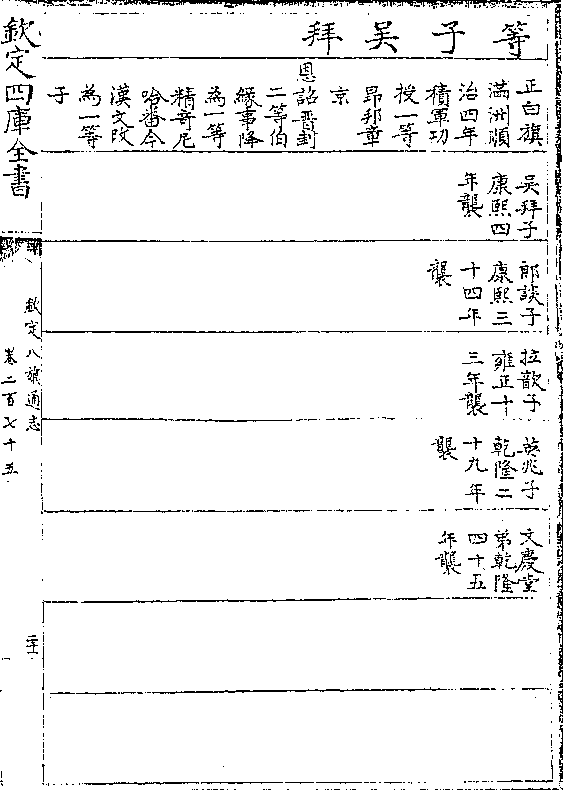 等子吴拜
正白旗
滿洲順
治四年
積軍功
授一等
昂邦章
京
恩詔晋封
二等伯
緣事降
為一等
精竒尼
哈番今
漢文改
為一等
子
吴拜子
康熙四
年襲
郎談子
康熙三
十四年
襲
拉歆子
雍正十
三年襲
英兆子
乾隆二
十九年
襲
文慶堂
弟乾隆
四十五
年襲
欽定四庫全書
欽定八旗通志
卷二百七十五